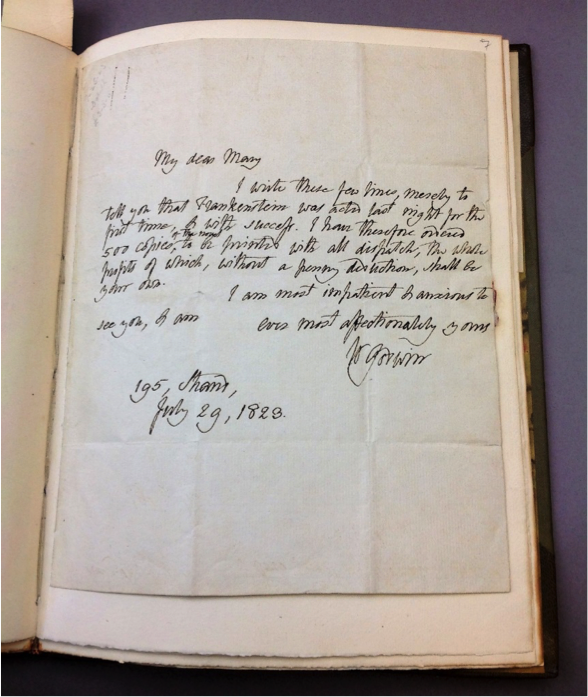 My dear Mary
I write these few lines, merely to
tell you that Frankenstein was acted last night for the
first time, & with success. I have therefore ordered
500 copies of the novel to be printed with all dispatch, the whole
profits of which, without a penny deduction, shall be
your own.
I am most impatient & anxious to
see you, & am ever most affectionately yours
W Godwin
195, Strand,
July 29, 1823.